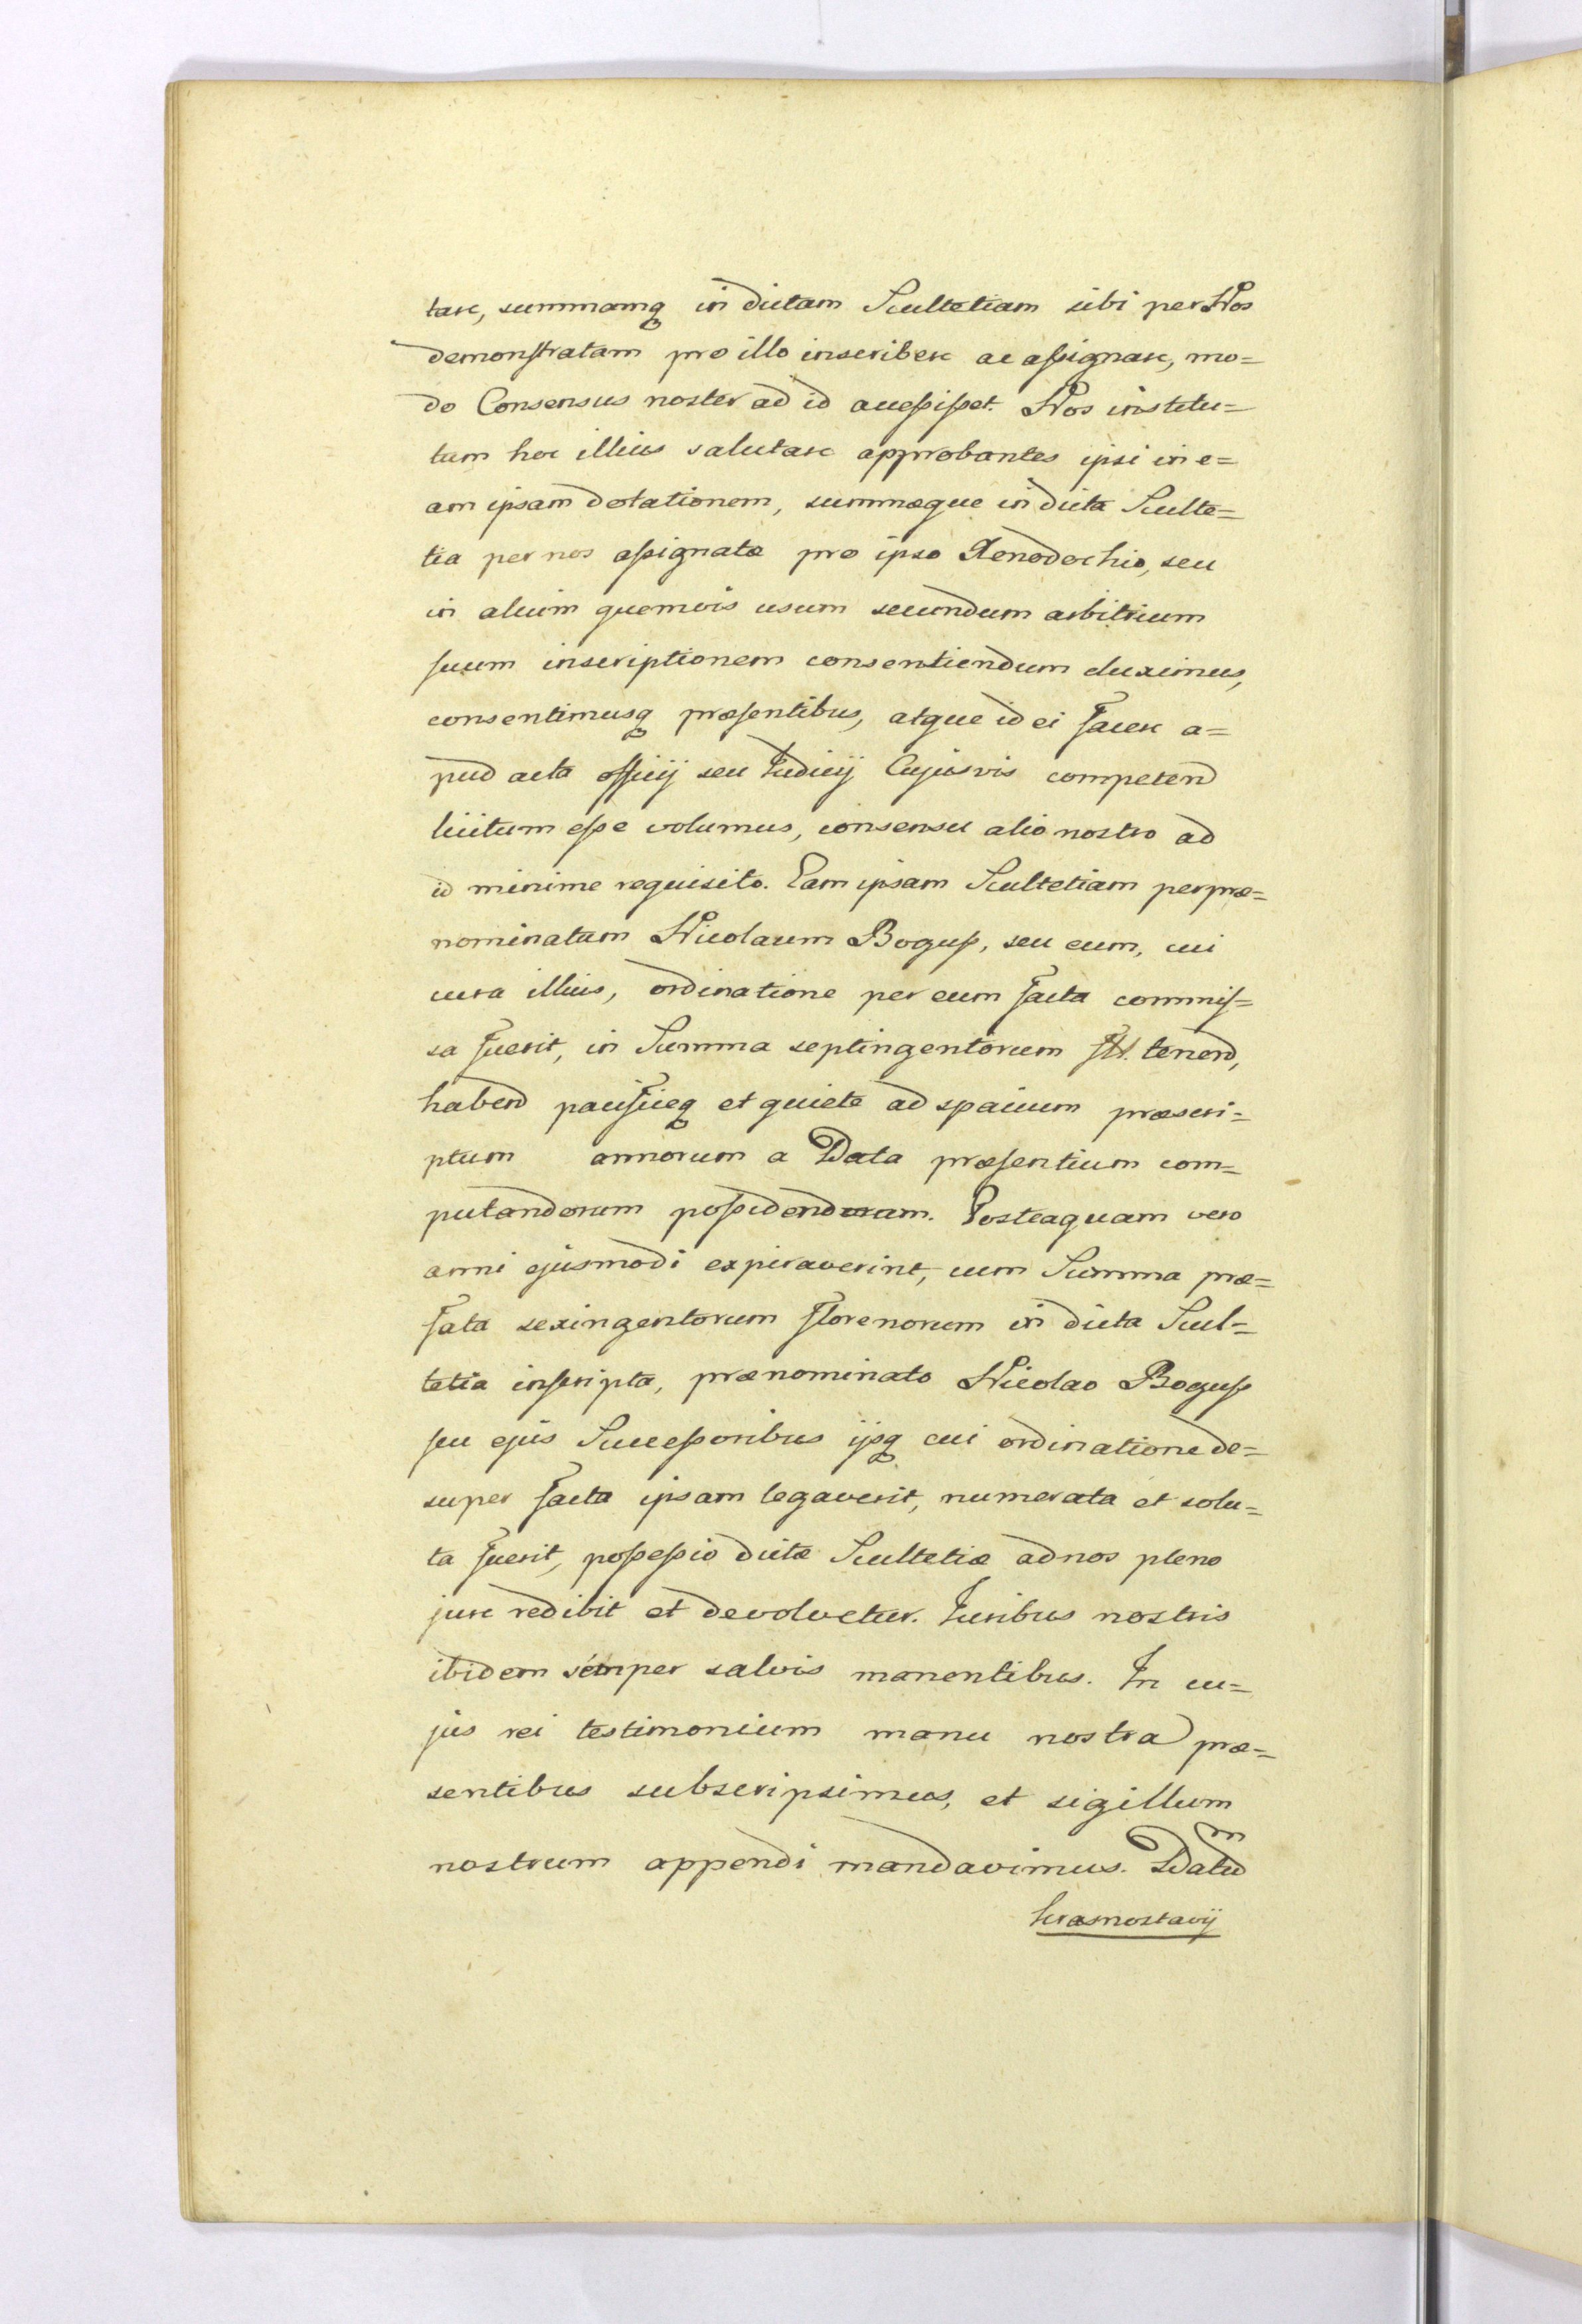 tare, summamq in dictam Scultetiam sibi per Nos
demonstratam pro illo inscribere ac assignare, mo=
do Consensus noster ad id accessisset. Nos institu=
tum hoc illius salutare approbantes ipsi in e=
am ipsam dotationem, summæque in dicta Sculte=
tia per nos assignatæ pro ipso Xenodochio, seu
in alium quemvis usum secundum arbitrium
suum inscriptionem consentiendum duximus,
consentimusq præsentibus, atque id ei facere a=
pud acta officij seu Judicij Cujusvis competend
licitum esse volumus, consensu alio nostro ad
id minime requisito. Eam ipsam Scultetiam per præ=
nominatam Nicolaum Boguss, seu eum, cui
cura illius, ordinatione per eum facta commis=
sa fuerit, in Summa septingentorum fl. tenend,
habend pacificeq et quiete ad spacium præscri=
ptum annorum a Data præsentium com=
putandorum possidendam. Posteaquam vero
anni ejusmodi expiraverint, cum Summa præ=
fata sexingentorum florenorum in dicta Scul=
tetia inscripta, prænominato Nicolao Boguss
seu ejus Successoribus ijsq cui ordinatione de=
super facta ipsam legaverit, numerata et solu=
ta fuerit, possessio dictæ Scultetiæ ad nos pleno
jure redibit et devolvetur. Juribus nostris
ibidem semper salvis manentibus. In cu=
jus rei testimonium manu nostra præ=
sentibus subscripsimus, et sigillum
nostrum appendi mandavimus. Datum
krasnostavij